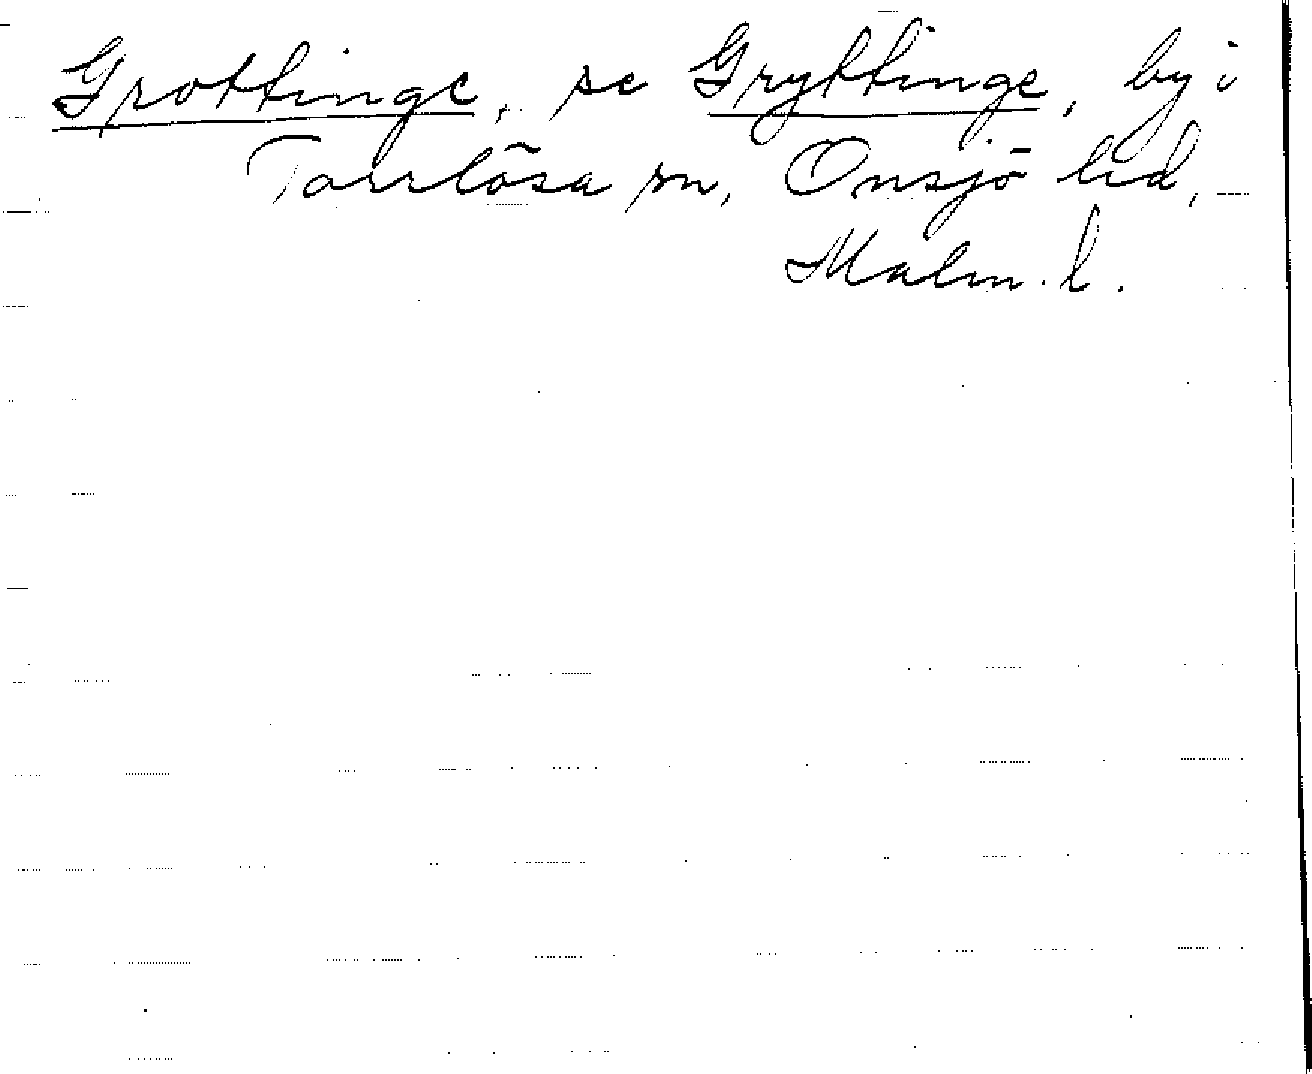 Grottinge, se Gryttinge, by i
Torrlösa sn, Onsjö hd,
Malm. l.